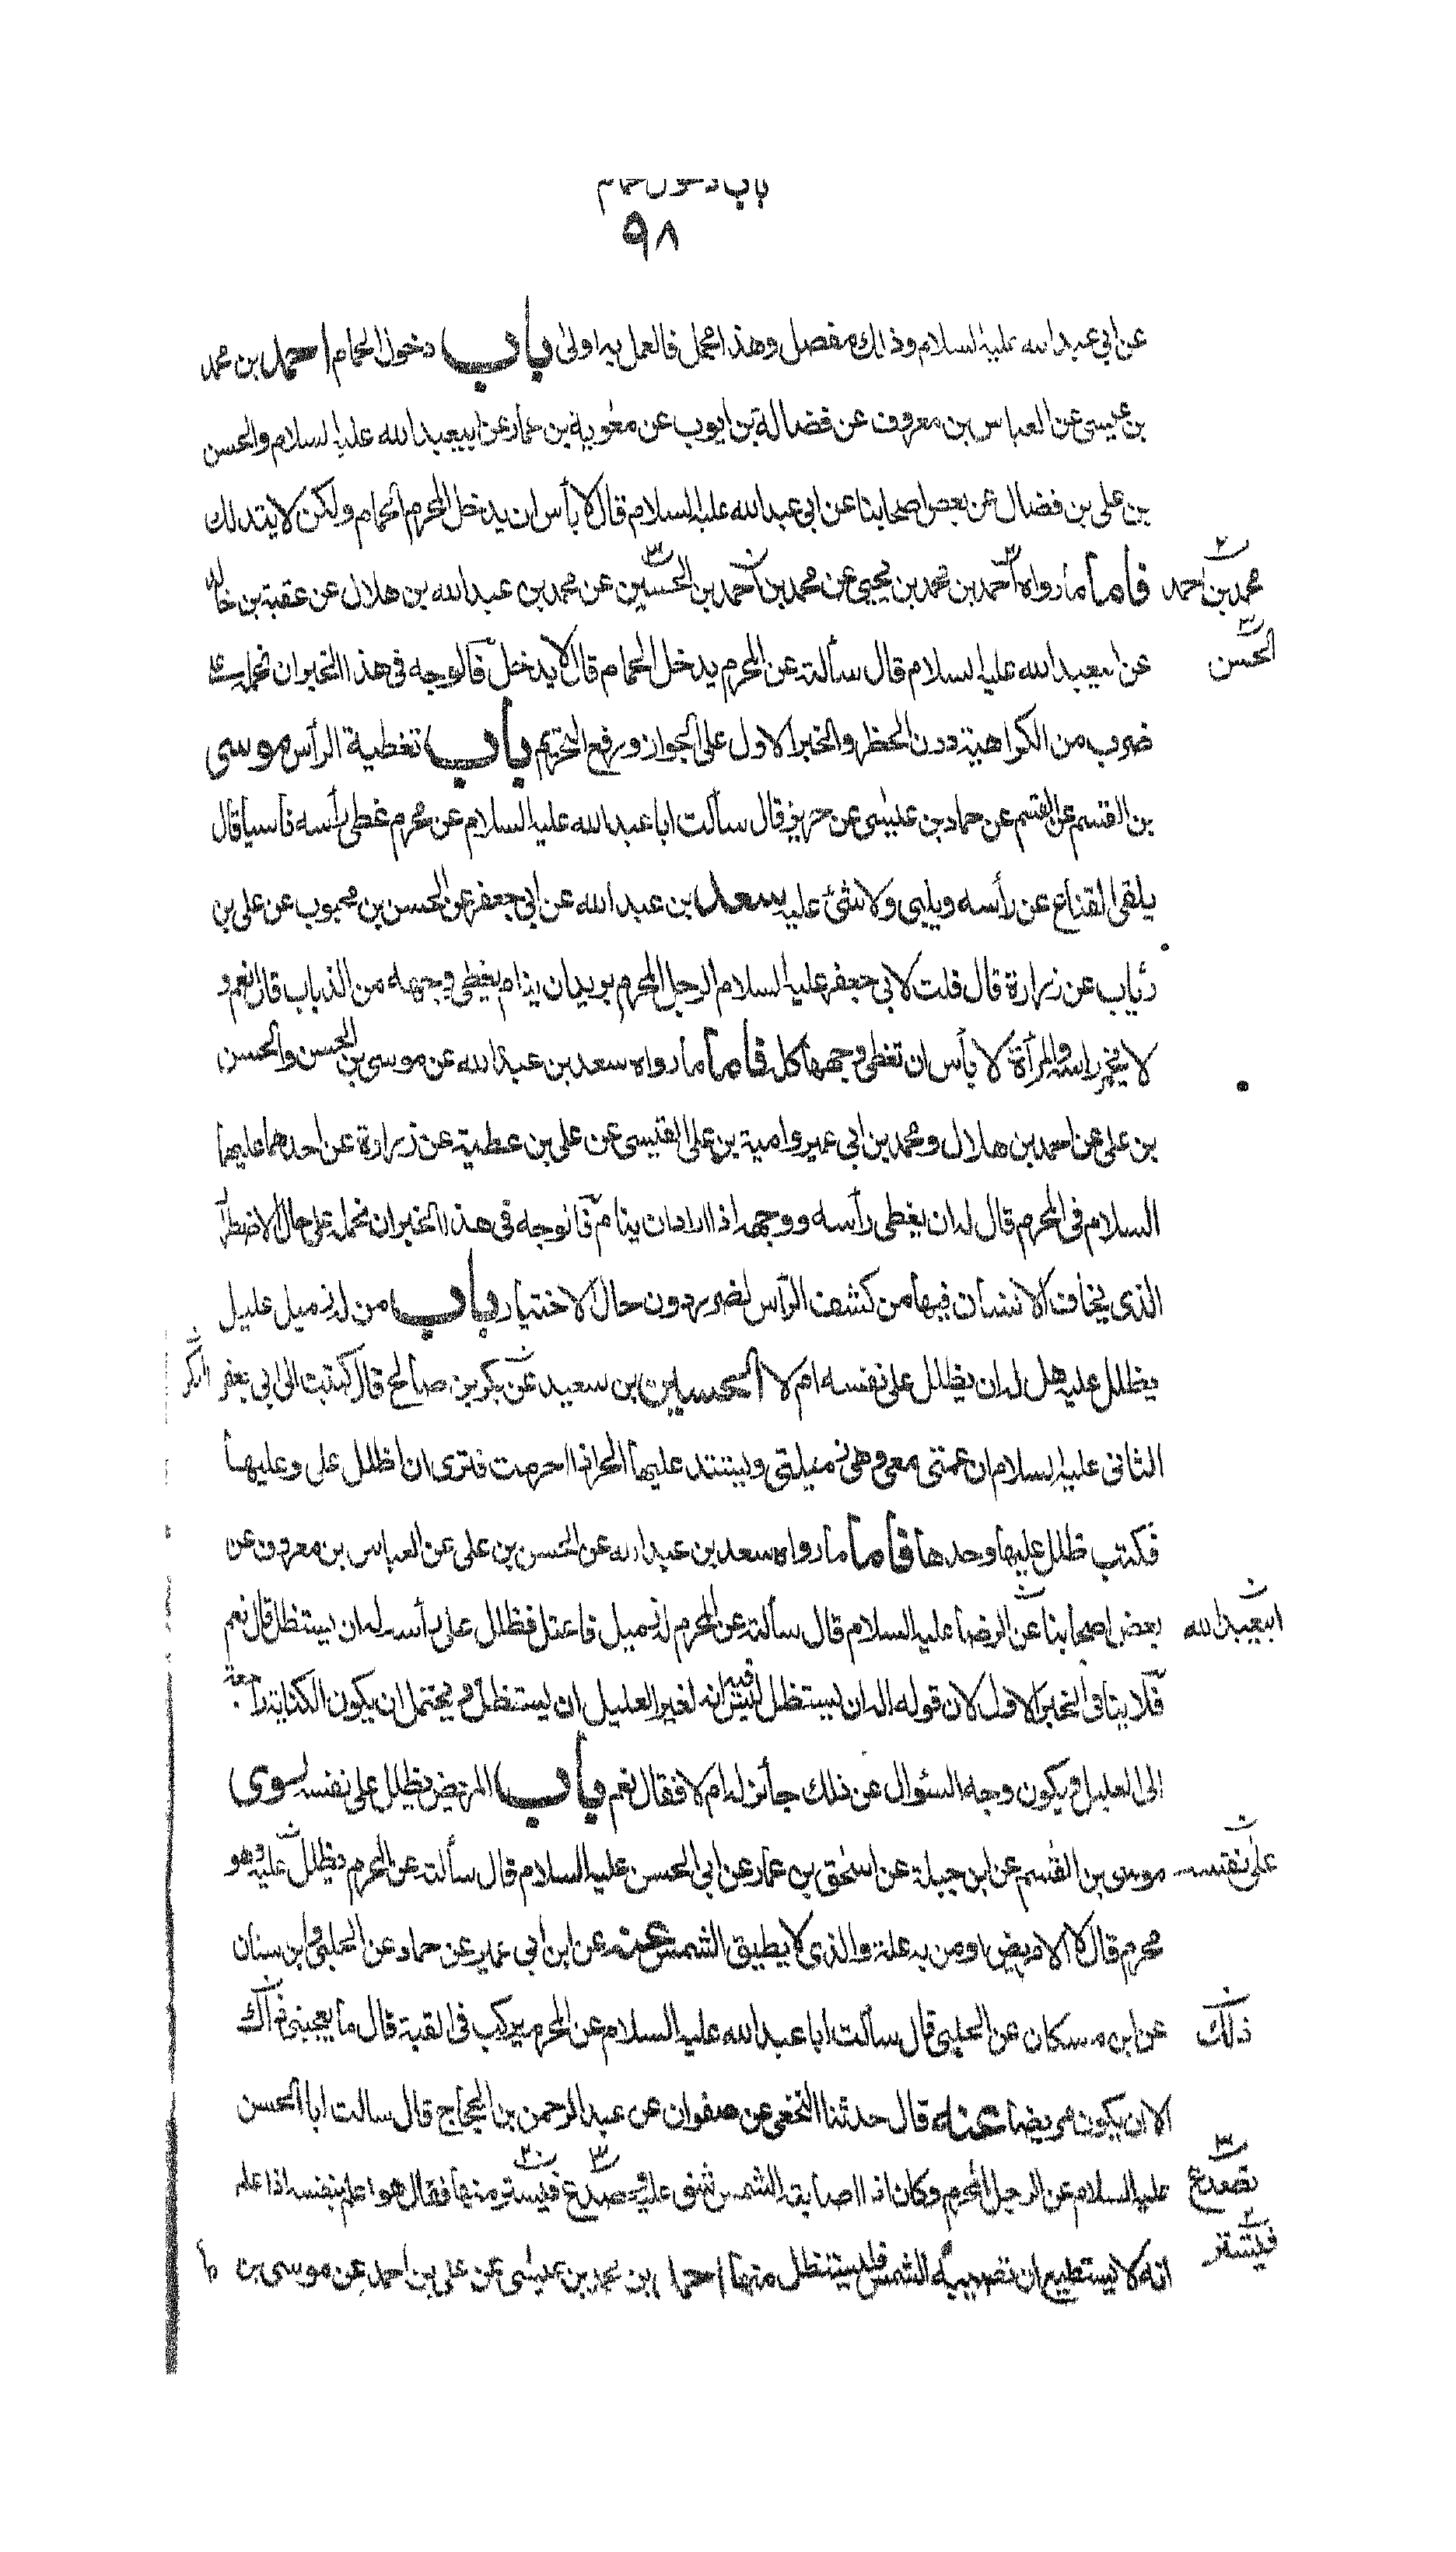 باب دخول حمام
٩٨
عن ابي عبد الله عليه السلام وذلك مفصل وهذا مجمل فالعمل به اولى باب دخول الحمام احمد بن محمد
بن عيسى عن العباس بن معروف عن فضالة بن ايوب عن معوية بن عمار عن ابيعبد الله عليه السلام والحسن
بن علي بن فضال عن بعض اصحابنا عن ابي عبد الله عليه السلام قال لا بأس ان يدخل المحرم الحمام ولكن لا يتدلك
فاما ما رواه احمد بن محمد بن يحيى عن محمد بن احمد بن الحسين عن محمد بن عبد الله بن هلال عن عقبة بن خالد
محمد بن احمد
الحسن
عن ابيعبد الله عليه السلام قال سألته عن المحرم يدخل الحمام قال لا يدخل فالوجه في هذا الخبر ان نحمله على
ضرب من الكراهية دون الحظر والخبر الاول على الجواز ورفع التحريم باب تغطية الرأس موسى
بن القسم عن القسم عن حماد بن عيسى عن حريز قال سألت ابا عبد الله عليه السلام عن محرم غطى رأسه ناسيا قال
يلقى القناع عن رأسه ويلبي ولا شئ عليه سعد بن عبد الله عن ابي جعفر عن الحسن بن محبوب عن علي بن
رئاب عن زرارة قال قلت لابي جعفر عليه السلام الرجل المحرم يريد ان ينام يغطي وجهه من الذباب قال نعم و
لا يخمر راسه والمرأة لا بأس ان تغطي وجهها كله فاما ما رواه سعد بن عبد الله عن موسى بن الحسن والحسن
بن علي عن احمد بن هلال ومحمد بن ابي عمير وامية بن علي القيسي عن علي بن عطية عن زرارة عن احدهما عليهما
السلام في المحرم قال له ان يغطي رأسه ووجهه اذا اراد ان ينام فالوجه في هذا الخبر ان نحمله على حال الاضطرار
الذي يخاف الانسان فيها من كشف الرأس لضرره دون حال الاختيار باب من له زميل عليل
يظلل عليه هل له ان يظلل على نفسه ام لا الحسين بن سعيد عن بكر بن صالح قال كتبت الى ابي جعفر
الثاني عليه السلام ان عمتي معي وهي زميلتي ويشتد عليها الحر اذا احرمت فترى ان اظلل علي وعليها
فكتب ظلل عليها وحدها فاما ما رواه سعد بن عبد الله عن الحسن بن علي عن العباس بن معروف عن
بعض اصحابنا عن الرضا عليه السلام قال سألته عن المحرم له زميل فاعتل فظلل على رأسه له ان يستظل قال نعم
ابيعبد الله
فلا ينافي الخبر الاول لان قوله اله ان يستظل ليس فيه انه لغير العليل ان يستظل ويحتمل ان يكون الكناية راجعة
الى العليل ويكون وجه السؤال عن ذلك جائز له ام لا فقال نعم باب المريض يظلل على نفسه سوى
موسى بن القسم عن ابن جبلة عن اسحق بن عمار عن ابي الحسن عليه السلام قال سألته عن المحرم يظلل عليه وهو
على نفسه
محرم قال لا الا مريض او من به علة والذي لا يطيق الشمس عنه عن ابن ابي عمير عن حماد عن الحلبي وابن سنان
عن ابن مسكان عن الحلبي قال سألت ابا عبد الله عليه السلام عن المحرم يركب في القبة قال ما يعجبني ذاك
ذلك
الا ان يكون مريضا عنه قال حدثنا النخعي عن صفوان عن عبد الرحمن بن الحجاج قال سالت ابا الحسن
عليه السلام عن الرجل المحرم وكان اذا اصابته الشمس شق عليه وصدع فيستتر منها فقال هو اعلم بنفسه اذا علم
تصدع
فيستتر
انه لا يستطيع ان تصيبه الشمس فليستظل منها احمد بن محمد بن عيسى عن علي بن احمد عن موسى بن